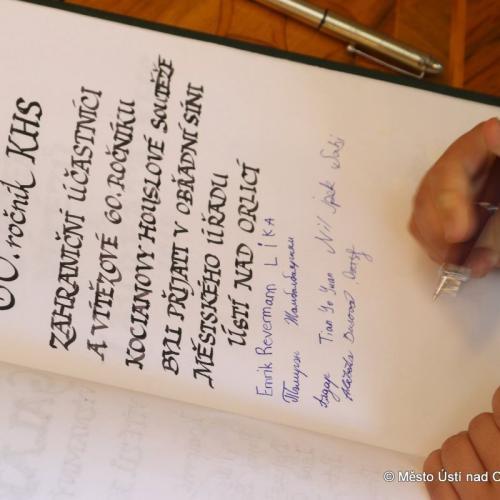 60. ročník KHS
ZAHRANIČNÍ ÚČASTNÍCI
A VÍTĚZOVÉ 60. ROČNÍKU
KOCIANOVY HOUSLOVÉ SOUTĚŽE
BYLI PŘIJATI V OBŘADNÍ SÍNI
MĚSTSKÉHO ÚŘADU
ÚSTÍ NAD ORLICÍ
Emrik Revermann LÍKA
Tian Yo Yuan Nil
© Město Ústí nad O